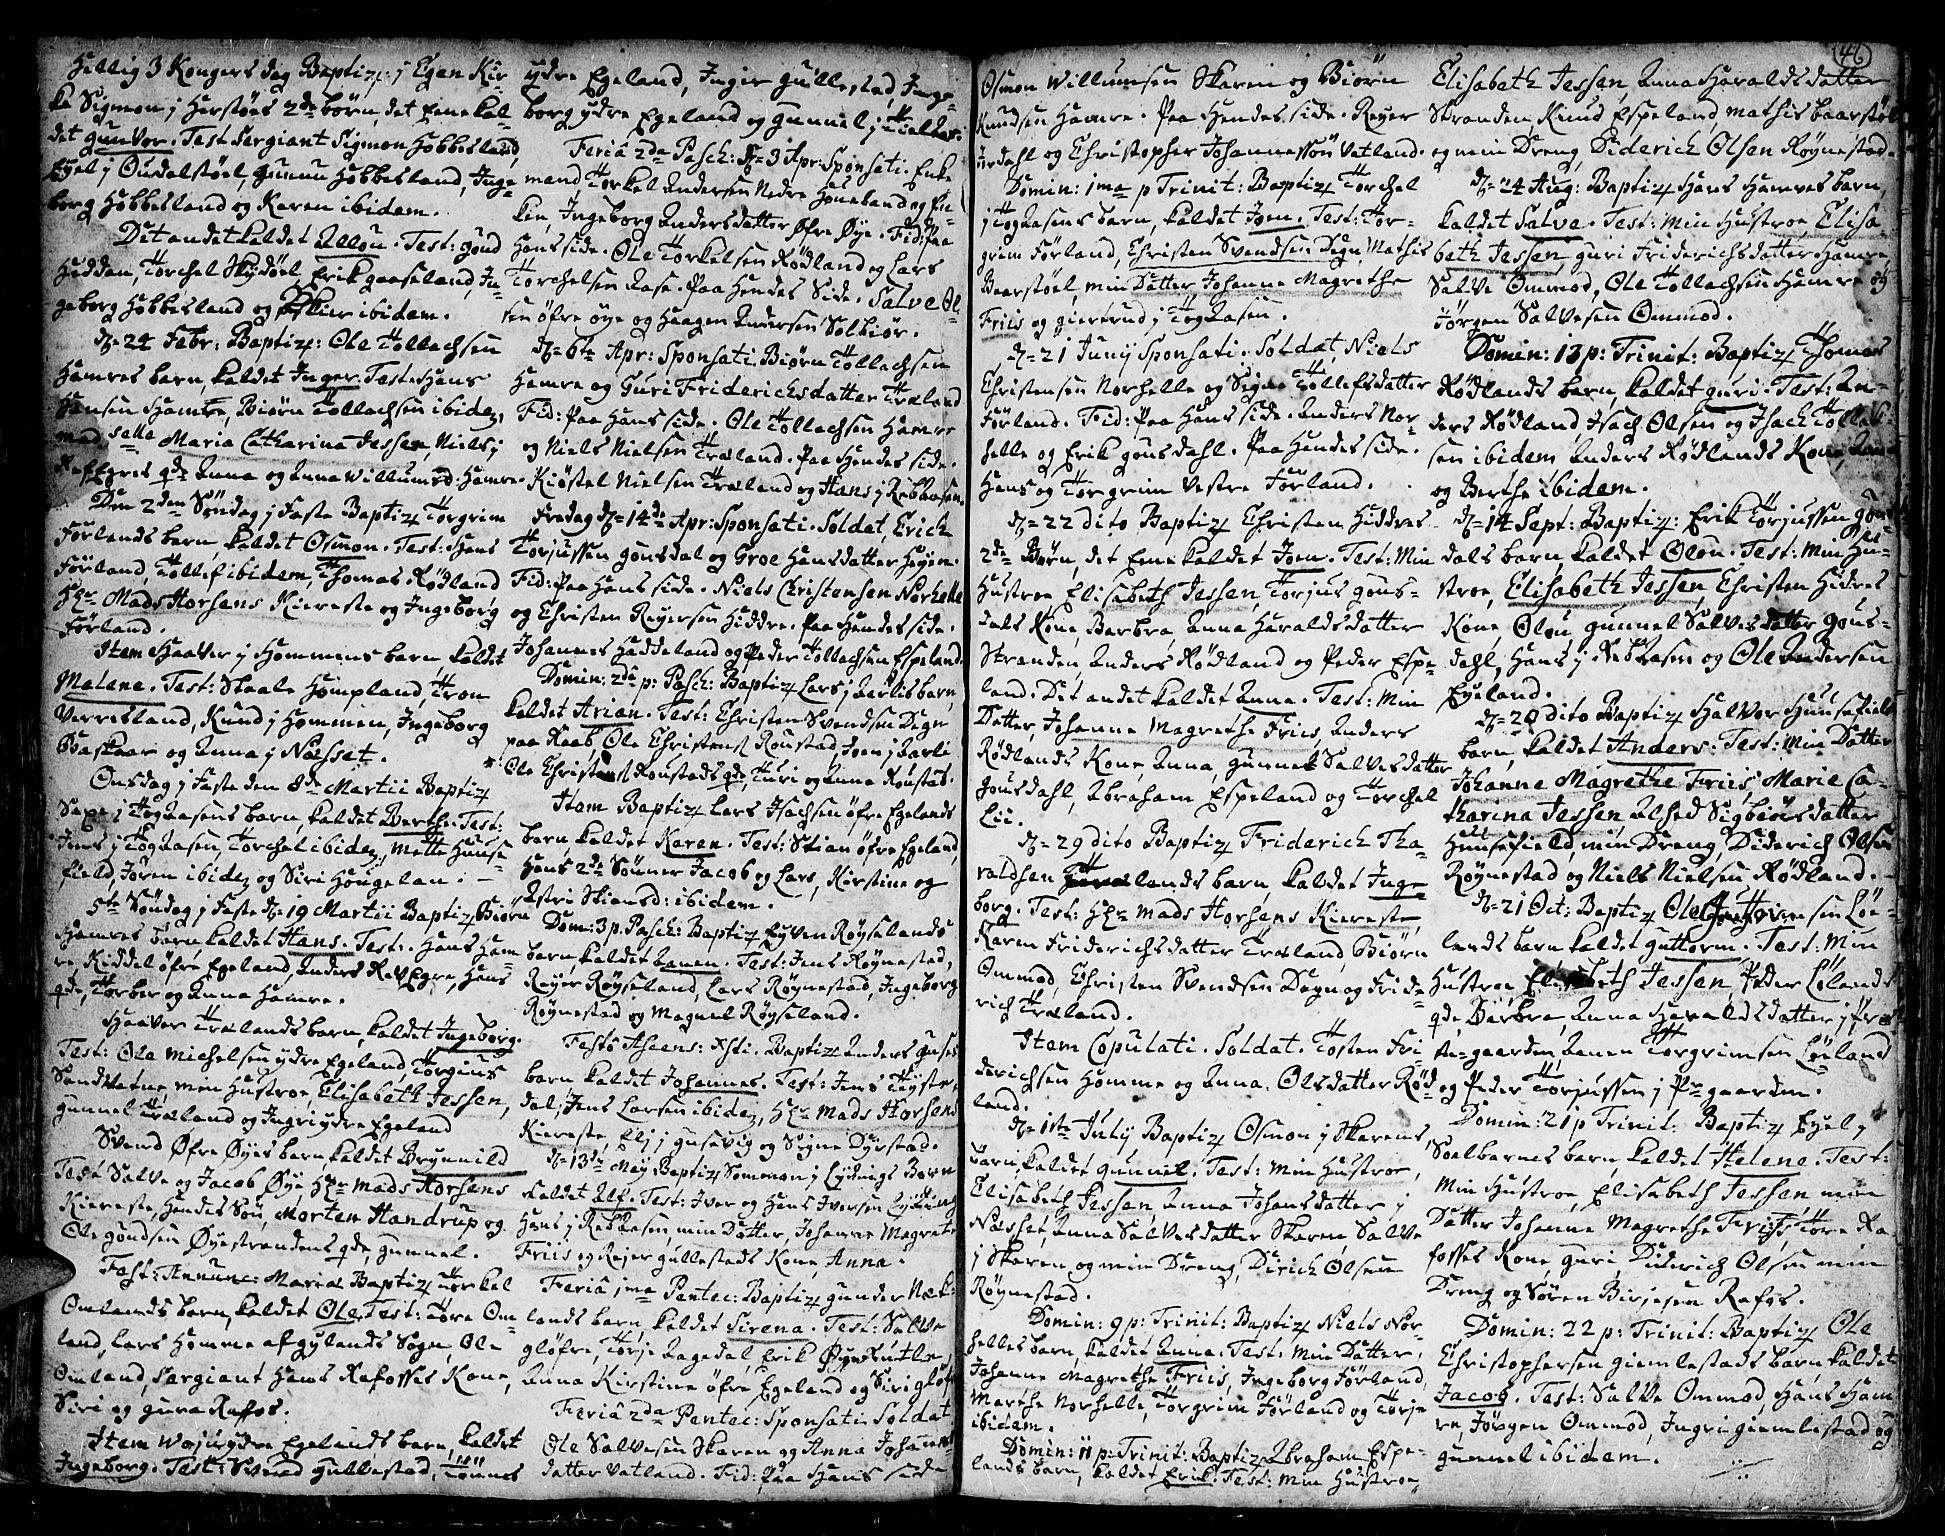 Hellig 3 Kongers dag Baptiz: j Egen Kir-
ke Sigmon j Herstøes 2de børn, det Eene kal-
det gunvor. Test Sergiant Sigmon Høbbesland
Eyel j Oudalstøel, gunnu Høbbesland, Inge-
borg Høbbesland og Karen ibidem.
Det andet kaldet Allou. Test: gönd
Hidden, Torchel Skydöel, Erik gaaseland, In-
geborg Höbbesland og ibidem.
d= 24 Febr: Baptiz: Ole Tollachsen
Hamres barn, kaldet Inger. Test: Hans
Hansen Hamre, Biørn Tollachsen ibidem,
mad.selle Maria Catharina Jessen, Niels j
qde Anna og Anna Willumsd: Hamre.
Den 2den Søndag j Faste Baptiz Torgrim
Förlands barn, kaldet Osmon. Test: Hans
Förland, Tollef ibidem, Thomas Rödland
Hr Mads Horsens Kiereste og Ingeborg
Förland.
Item Haaver j Hommens barn, kaldet
Malene. Test: Staale Hompland, Tron
Verrisland, Knud j Hommen, Ingeborg
Baskaar og Anna j Næsset.
Onsdag j Faste den 8de Martii Baptiz
Saxe j Tog aasens barn, kaldet Berthe. Test:
Jens j Tog aasen, Torchel ibidem, Mette Huuse-
field, Joren ibidem og Siri Hougelan:
5te Søndag j Faste d= 19 Martii Baptiz Biörn
Hamres barn, kaldet Hans. Test: Hans Ham-
re, Kiddel öfre Egeland, Anders Refsgre, Hans
qde, Torber og Anna Hamre.
Haaver Trælands barn, kaldet Ingeborg.
Test: Ole Michelsen ydre Egeland, Torgius
Sandvatne, min Hustroe, Elisabeth Jessen,
gunnel Træland og Ingri ydre Egeland
Svend Øfre Øyes barn, kaldet Brynnild
Test Salve og Jacob Øye, Hr Mads Horsens
Kiereste, Hendes Søn, Morten Handrup og
Ole göndsen Øyestrandens qde, gunnel.
Fest: Annunc: Mariæ Baptiz Torkel
Omlands barn, kaldet Ole. Test: Tore Om-
land, Lars Homme af gylands Sogn, Ole
Omland, Sergiant Hans Rafosses Kone,
Siri og gura Rafos.
Item ydre Egelands barn, kaldet
Ingeborg. Test: Svend gullestad, Tönnes
ydre Egeland, Inger gullestad, Inge-
borg ydre Egeland og gunnel j
Feriâ 2da Pasch: d= 3 Apr: Sponsati. Enke
mand, Torkel Andersen Nedre Höneland og En-
ken, Ingeborg Andersdatter Øfre Øye. Fid: Paa
Hans side. Ole Torkelsen Rödland og Lars
Torchelsen Aase. Paa Hendes Side. Salve Ol-
sen öfre öye og Haagen Andersen Solbiör.
d= 6te Apr: Sponsati. Biørn Tollachsen
Hamre og Guri Friderichsdatter Træland
Fid: Paa Hans side. Ole Tollachsen Hamre
og Niels Nielsen Træland. Paa Hendes side.
Kiöstel Nielsen Træland og Hans j Rebaasen.
Fredag d= 14de Apr: Sponsati. Soldat, Erich
Torjussen gönsdal og Groe Hansdatter Høyem.
Fid: Paa Hans side. Niels Christensen Norhelle
og Christen Reyersen Hiddre. Paa Hendes side.
Johannes Haddeland og Peder Tollachsen Espeland.
Domin: 2da p: Pasch: Baptiz Lars j barn,
kaldet Arian. Test: Christen Svendsen Degn
paa Raab, Ole Christens: Roustad, Joen j
Ole Christens Roustads qde, Turi og Anna Roustad.
Item Baptiz Lars Isachsen öfre Egelands
barn, kaldet Karen. Test: Stian öfre Egeland,
Hans 2de Sønner Jacob og Lars, Kirstine og
Astri Stiansd: ibidem.
Dom: 3 p. Pasch: Baptiz Eyven Röyselands
barn kaldet Aanen. Test: Jens Röynestad,
Reyer Röyseland, Lars Röynestad, Ingeborg
Röynestad og Magnel Röyseland.
Festo Ascens: Xsti. Baptiz Anders
barn kaldet Johannes. Test: Jens
dal, Jens Larsen ibidem, Hr Mads Horsens
Kiereste, Eli j gusevig og Signe Dyrstad.
d= 13de Maÿ Baptiz Sommon j Lydings Barn
kaldet Alf. Test: Iver og Hans Iversen Lyding
Hans j Rebaasen, min Datter, Johanne Magrete
Friis og Rejer gullestads Kone, Anna.
Feriâ 1ma Pentec: Baptiz gunder
lands barn, kaldet Sirena. Test: Salve
glöfre, Torje Aagedal, Erik
Anna Kirstine öfre Egeland og Siri glöfre
Feriâ 2da Pentec: Sponsati. Soldat
Ole Salvesen Skaren og Anna Johannes
datter Vatland. Fid: Paa Hans side
Osmon Willumsen Skaren og Biörn
Knudsen Hamre. Paa Hendes side. Reyer
Urdahl og Christopher Johannessön Vatland.
Domin: 1ma p Trinit: Baptiz Torchel
j Tog aasens barn, kaldet Joen. Test: Tor-
grim Förland, Christen Svendsen Degn, Mathis
Baarstöel, min Datter Johanne Magrethe
Friis og giertrud j Tog aasen.
d= 21 Junij Sponsati. Soldat Niels
Christensen Norhelle og Signe Tollefsdatter
Förland. Fid: Paa Hans side. Anders Nor-
helle og Erik gönsdahl. Paa Hendes side.
Hans og Torgrim Vestre Förland.
d= 22 dito Baptiz Christen Hiddres
2de Børn, det Eene kaldet Joen. Test: Min
Hustroe Elisabeth Jessen, Torjus göns-
dals Kone, Barbra, Anna Haraldsdatter
Stranden, Anders Rödland og Peder Espe-
land. Det andet kaldet Anna. Test: Min
Datter, Johanne Magrethe Friis, Anders
Rödlands Kone, Anna, gunnel Salvesdatter
gönsdahl, Abraham Espeland og Torchel
Lii.
d= 29 dito Baptiz Friderich Tha-
raldsen Trælands barn, kaldet Inge-
borg. Test: Hr Mads Horsens Kiereste,
Karen Friderichsdatter Træland, Biörn
Ommod, Christen Svendsen Degn og Fride-
rich Træland.
Item Copulati. Soldat. Tosten Fri-
derichsen Homme og Anna Olsdatter Röd-
land.
d= 1ste July Baptiz Osmon j Skarens
barn, kaldet gunnel. Test: Min Hustroe,
Elisabeth Jessen, Anna Johansdatter j
Næsset, Anna Salvesdatter Skaren, Salve
j Skaren og min Dreng, Dirich Olsen
Röynestad.
Domin: 9 p: Trinit: Baptiz Niels Nor-
helles barn, kaldet Anna. Test: Min Datter,
Johanne Magrethe Friis, Ingeborg Förland,
Marthe Norhelle, Torgrim Förland og Torje
ibidem.
Domin: 11 p: Trinit: Baptiz Abraham Espe-
lands barn, kaldet Erik. Test: Min Hustroe,
46
Elisabeth Jessen, Anna Haraldsdatter
Stranden, Knud Espeland, Mathis Baarstöel
og min Dreng, Diderich Olsen Röynestad.
d= 24 Aug: Baptiz Hans Hamres barn,
kaldet Salve. Test: Min Hustroe, Elisa-
beth Jessen, guri Friderichsdatter Hamre,
Salve Ommod, Ole Tollachsen Hamre og
Jörgen Salvesen Ommod.
Domin: 13 p: Trinit: Baptiz Thomas
Rödlands barn, kaldet guri. Test: An-
ders Rödland, Isach Olsen og Isach Tollef-
sen ibidem, Anders Rödlands Kone, Anna
og Berthe ibidem.
d= 14 Sept: Baptiz: Erik Torjussen göns-
dals barn, kaldet Olou. Test: Min Hu-
stroe, Elisabeth Jessen, Christen Hidres
Kone, Olou, gunnel Salvesdatter göns-
dahl, Hans j Rebaasen og Ole Andersen
Eyeland.
dito Baptiz Halvor Huusefields
barn, kaldet Anders. Test: Min Datter
Johanne Magrethe Friis, Marie Ca-
tharina Jessen, Alhed Sigbiörsdatter
Huusefield, min Dreng, Diderich Olsen
Röynestad og Niels Nielsen Rödland.
d= 21 Oct: Baptiz Ole Guttormsen Löe-
lands barn, kaldet guttorm. Test: Min
Hustroe Elisabeth Jessen, Peder Lölands
qde, Barbra, Anna Haraldsdatter j Præ-
ste-gaarden, Aanen Torgrimsen Löeland
og Peder Torjussen j Pr gaarden.
Domin: 21 p Trinit: Baptiz Eyel j
Soelbarnes barn, kaldet Helene. Test:
Min Hustroe, Elisabeth Jessen, min
Datter Johanne Magrethe Friis, Tore Ra
fosses Kone, guri, Diderich Olsen min
Dreng og Sören Birjesen Rafos.
Domin: 22 p: Trinit: Baptiz Ole
Christophersen giemlestads barn, kaldet
Jacob. Test: Salve Ommod, Hans Ham-
re, Jörgen Ommod, Ingri giemlestad og
gunnel ibidem.